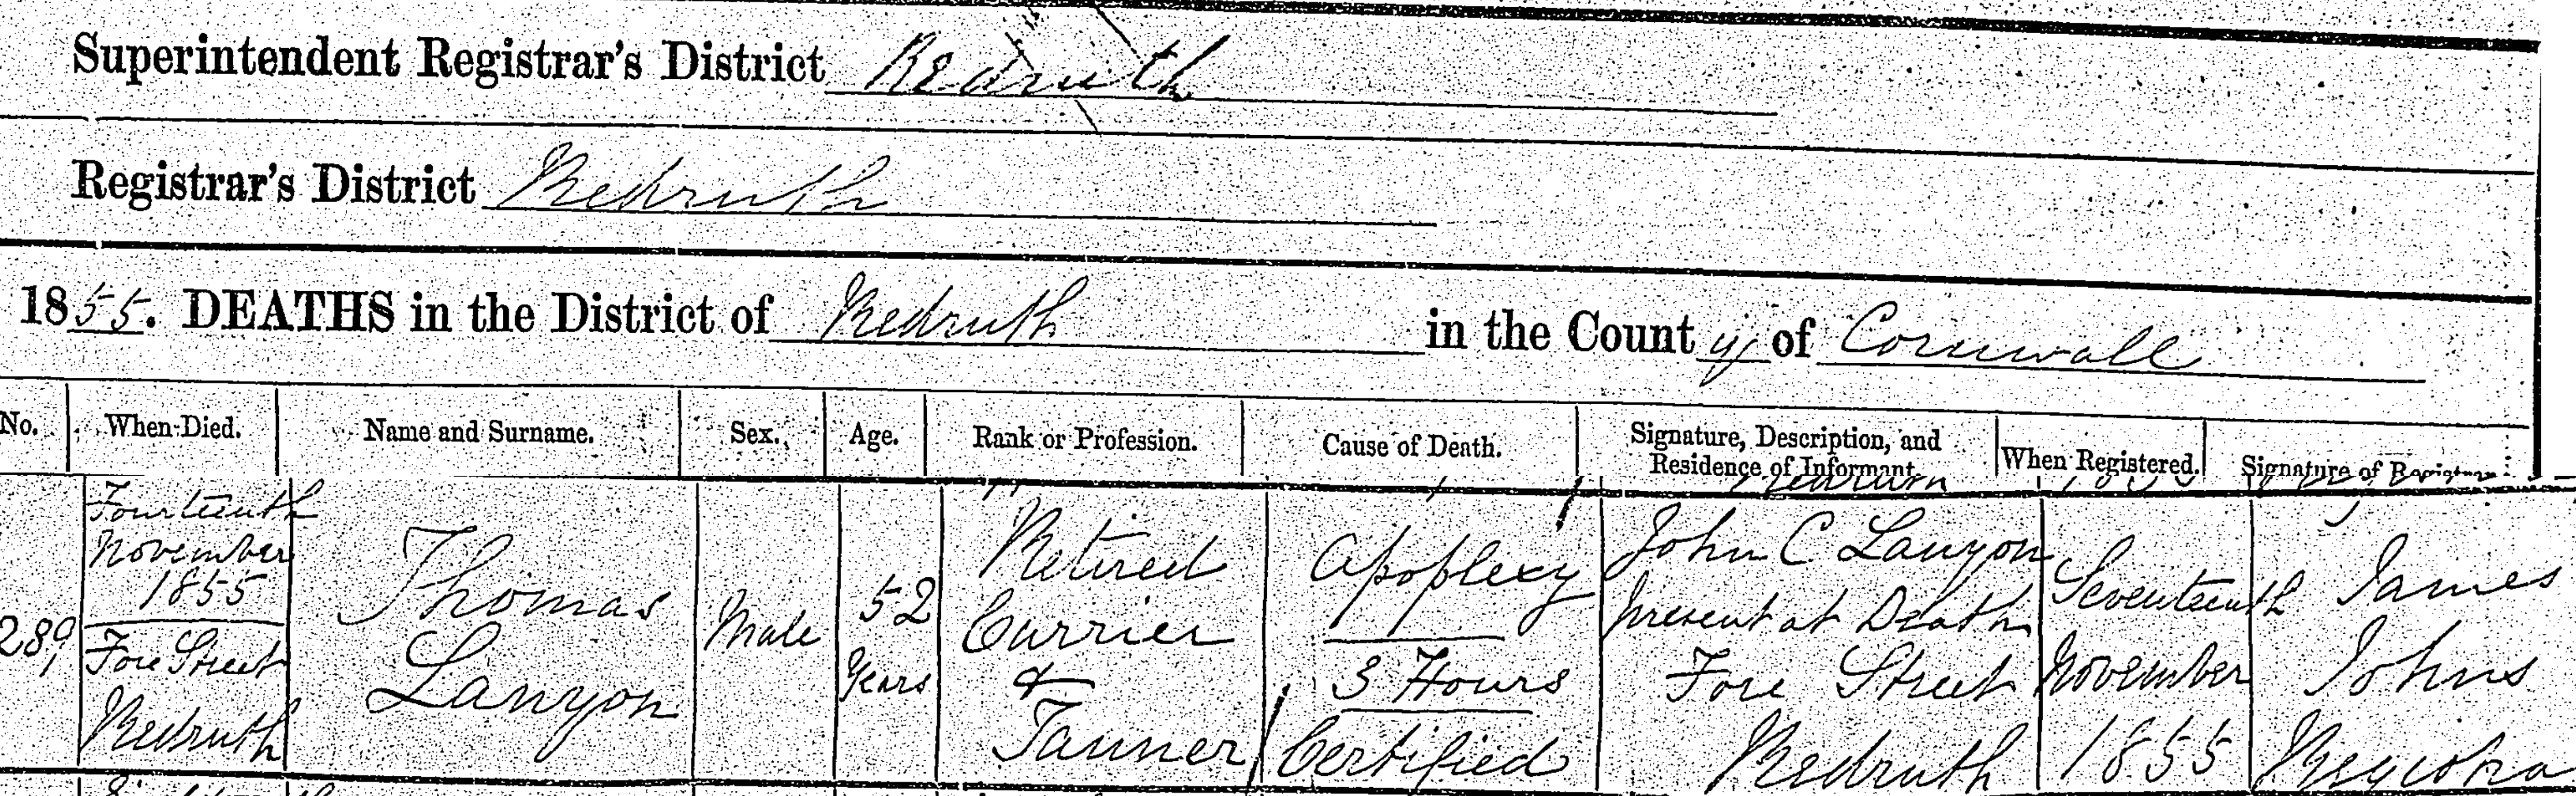 Superintendent Registrar's District Redruth
Registrar's District Redruth
1855. DEATHS in the District of Redruth in the County of Cornwall
No. When Died. Name and Surname. Sex. Age. Rank or Profession. Cause of Death. Signature, Description, and Residence of Informant When Registered. Signature of Registrar
289
Fourteenth
November
1855
Fore Street
Redruth
Thomas
Lanyon
Male
52
Years
Retired
Currier
&
Tanner
Apoplexy
3 Hours
Certified
John C Lanyon
present at Death
Fore Street
Redruth
Seventeenth
November
1855
James
Johns
Registra